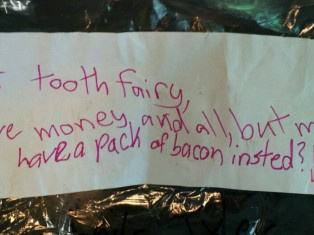 tooth fairy,
money, and all, but
have a pack of bacon insted?